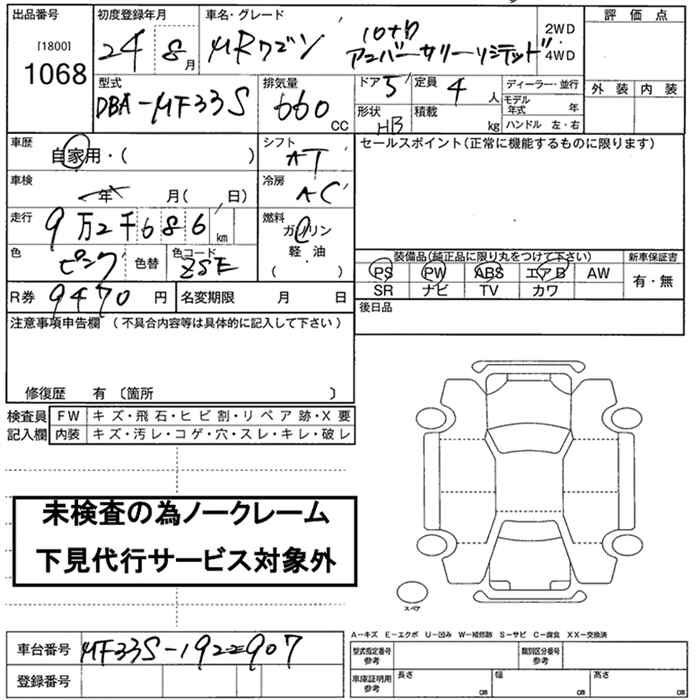 出品番号
[1800]
1068
初度登録年月
24 8月
車名・グレード
MRワゴン
10thアニバーサリーリミテッド
2WD
・
4WD
評価点
外装 内装
型式
DBA-MF33S
排気量
660 CC
ドア 5
定員 4人
形状 HB
積載 kg
ディーラー・並行
モデル年式 年
ハンドル 左・右
車歴
自家用・( )
シフト
AT
セールスポイント(正常に機能するものに限ります)
車検
年 月( 日)
冷房
AC
走行
9万2千686km
燃料
ガソリン
軽・油
( )
色
ピンク
色替
色コード
ZSE
装備品(純正品に限り丸をつけて下さい)
PS PW ABS エアB AW
SR ナビ TV カワ
新車保証書
有・無
R券 9470円
名変期限 月 日
後日品
注意事項申告欄(不具合内容等は具体的に記入して下さい)
修復歴 有〔箇所 〕
検査員記入欄
FW キズ・飛石・ヒビ割・リペア跡・X要
内装 キズ・汚レ・コゲ・穴・スレ・キレ・破レ
未検査の為ノークレーム
下見代行サービス対象外
スペア
A-キズ E-エクボ U-凹み W-補修跡 S-サビ C-腐食 XX-交換済
車台番号 MF33S-192907
登録番号
型式指定番号参考
類別区分番号参考
車庫証明用参考
長さ cm
幅 cm
高さ cm